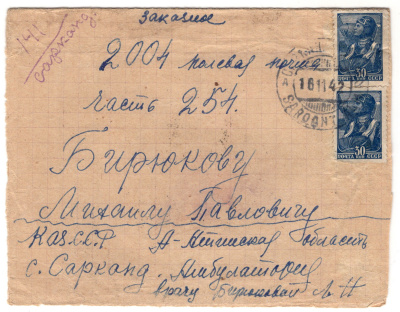 Заказное
141
Сарканд
2004 полевая почта
часть 254.
Бирюкову
Михаилу Павловичу
КазССР А-Атинская область
с. Сарканд. Амбулатория
врачу Бирюковой Л. Н
30
ПОЧТА СССР
16 11 42
30
ПОЧТА СССР